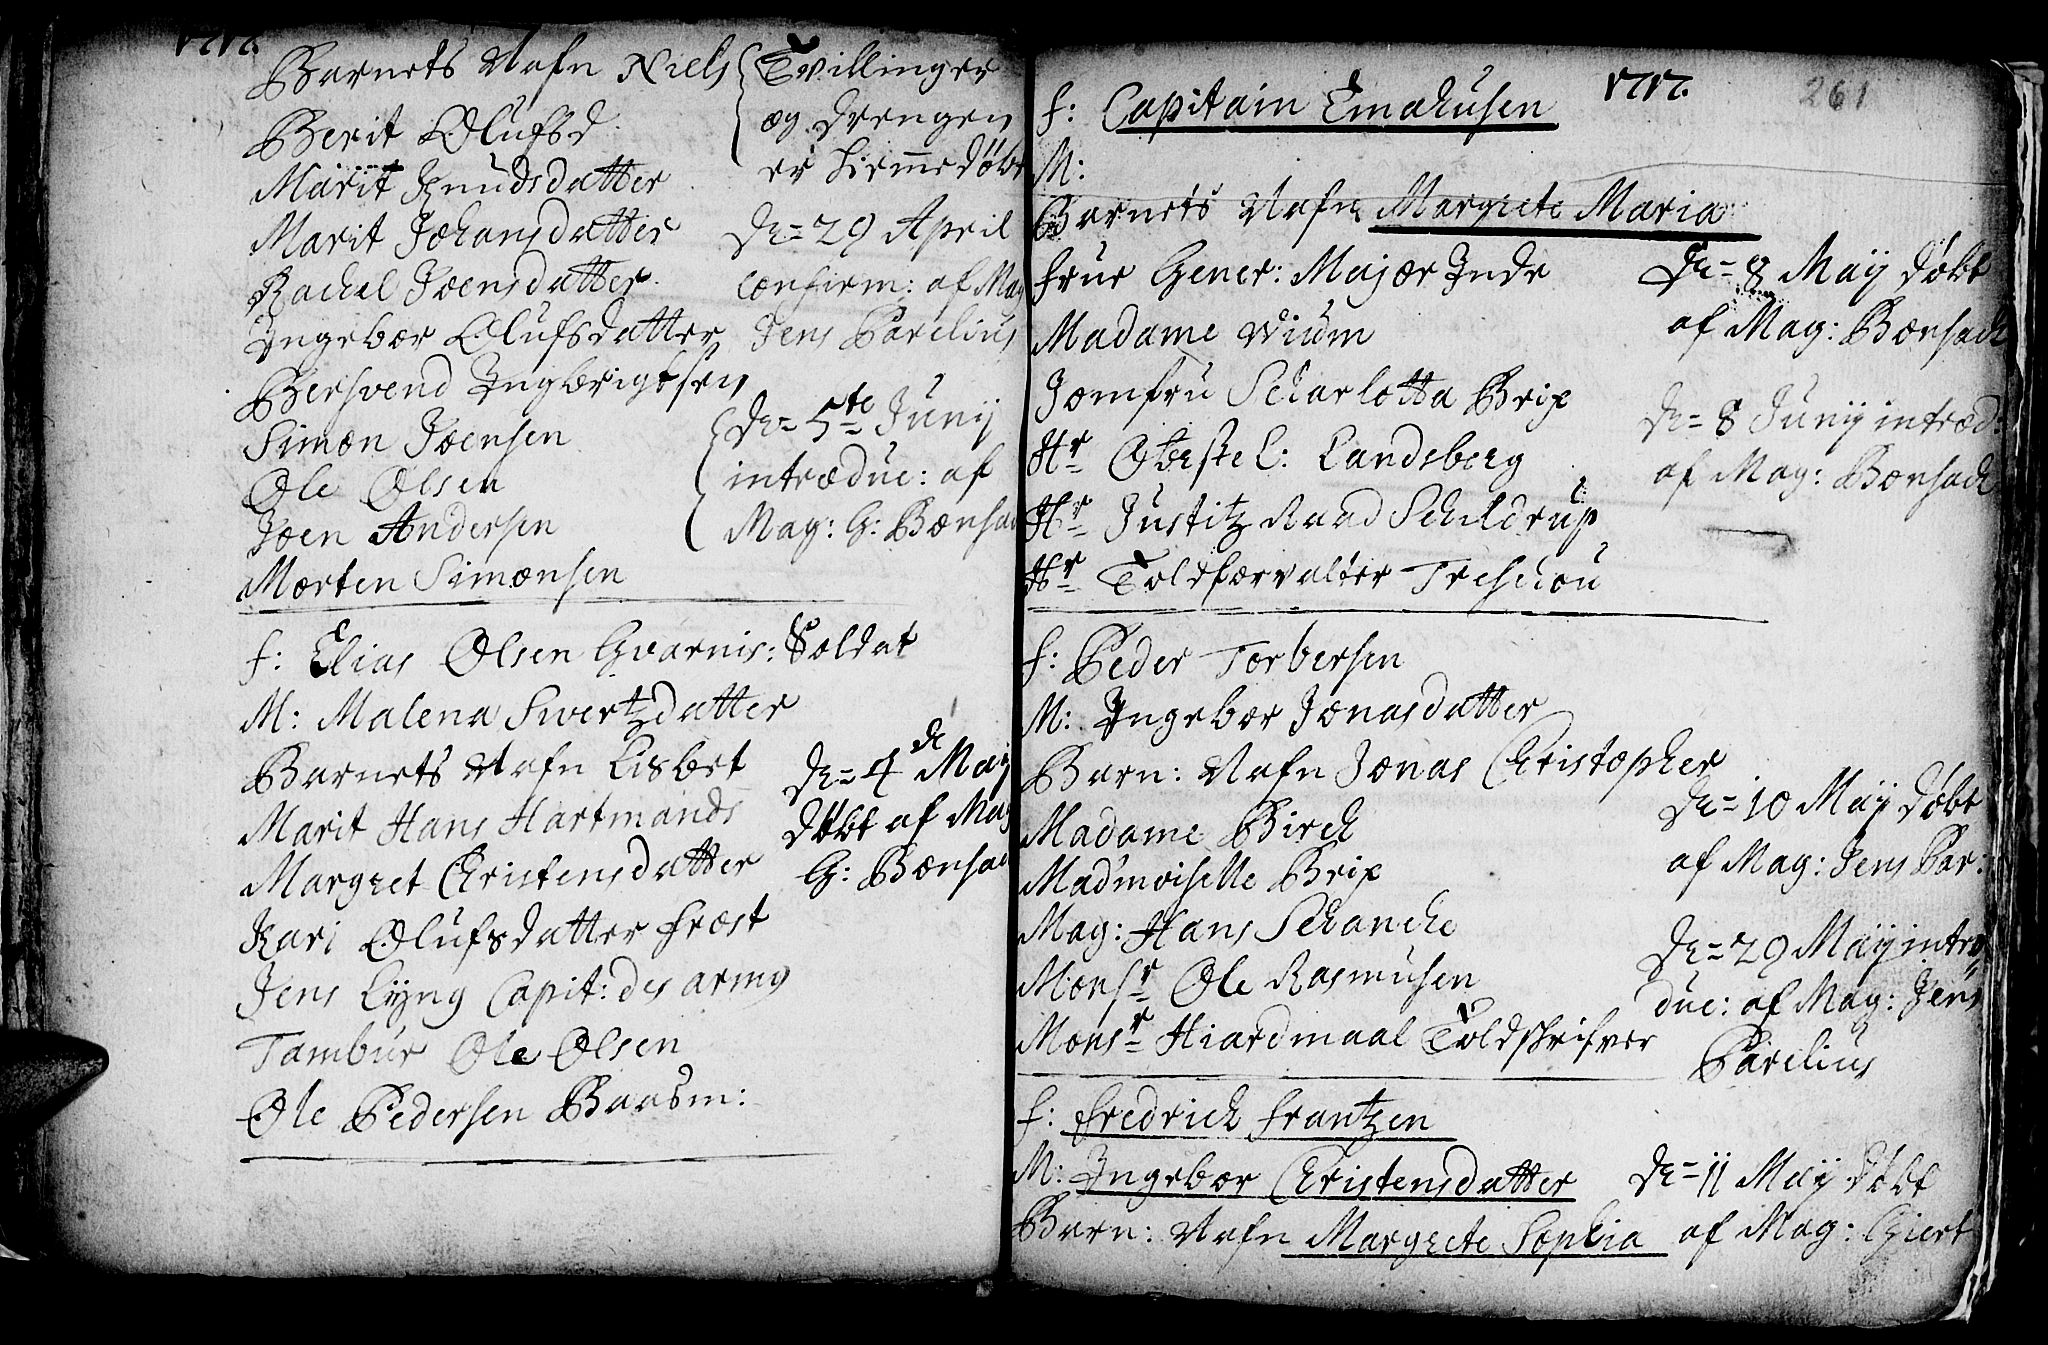 1717.
Barnets Nafn Niels
Berit Olufsd.
Marit Knudsdatter
Marit Johansdatter
Rachel Joensdatter
Ingebor Olufsdatter
Bersvend Ingbrigtsen
Simon Joensen
Ole Olsen
Joen Andersen
Morten Simonsen
Tvillinger
og drengen
er hiemedøbt
de= 29 April
confirm: af Mag
Jens Parelius
de= 5te Junij
introduc: af
Mag: G: Bonsac
f: Elias Olsen Gvarnis: Soldat
M: Malena Swertzdatter
Barnets Nafn Lisbet
Marit Hans Hartmands
Margret Christensdatter
Kari Olufsdatter Frost
Jens Lyng Capit: des armo
Tambur Ole Olsen
Ole Pedersen Baasm:
de= 4de Maij
døbt af Mag
G: Bonsac
1717. 261
f: Capitain Emahusen
M:
Barnets Nafn Margrete Maria
Frue Gener: Major Inde
Madame Wium
Jomfru Scharlotta Brix
Hr Oberste L: Landsberg
Hr Justitz Raad Scheldrup
Hr Toldforvalter Treschou
de= 8 Maij døbt
af Mag: Bonsach
de= 8 Junij introd:
af Mag: Bonsach
f: Peder Torbersen
M: Ingebor Jonasdatter
Barn: Nafn Jonas Christopher
Madame Birch
Madmoiselle Brix
Mag: Hans Schancke
Monsr Ole Rasmusen
Monsr Hiardmaal Toldskrifver
de= 10 Maij døbt
af Mag: Jens Par:
de= 29 Maij intro
duc: af Mag: Jens
Parelius
f: Fredrich Frantzen
M: Ingebor Christensdatter
Barn: Nafn Margrete Sophia
de= 11 Maij døbt
af Mag: Giert